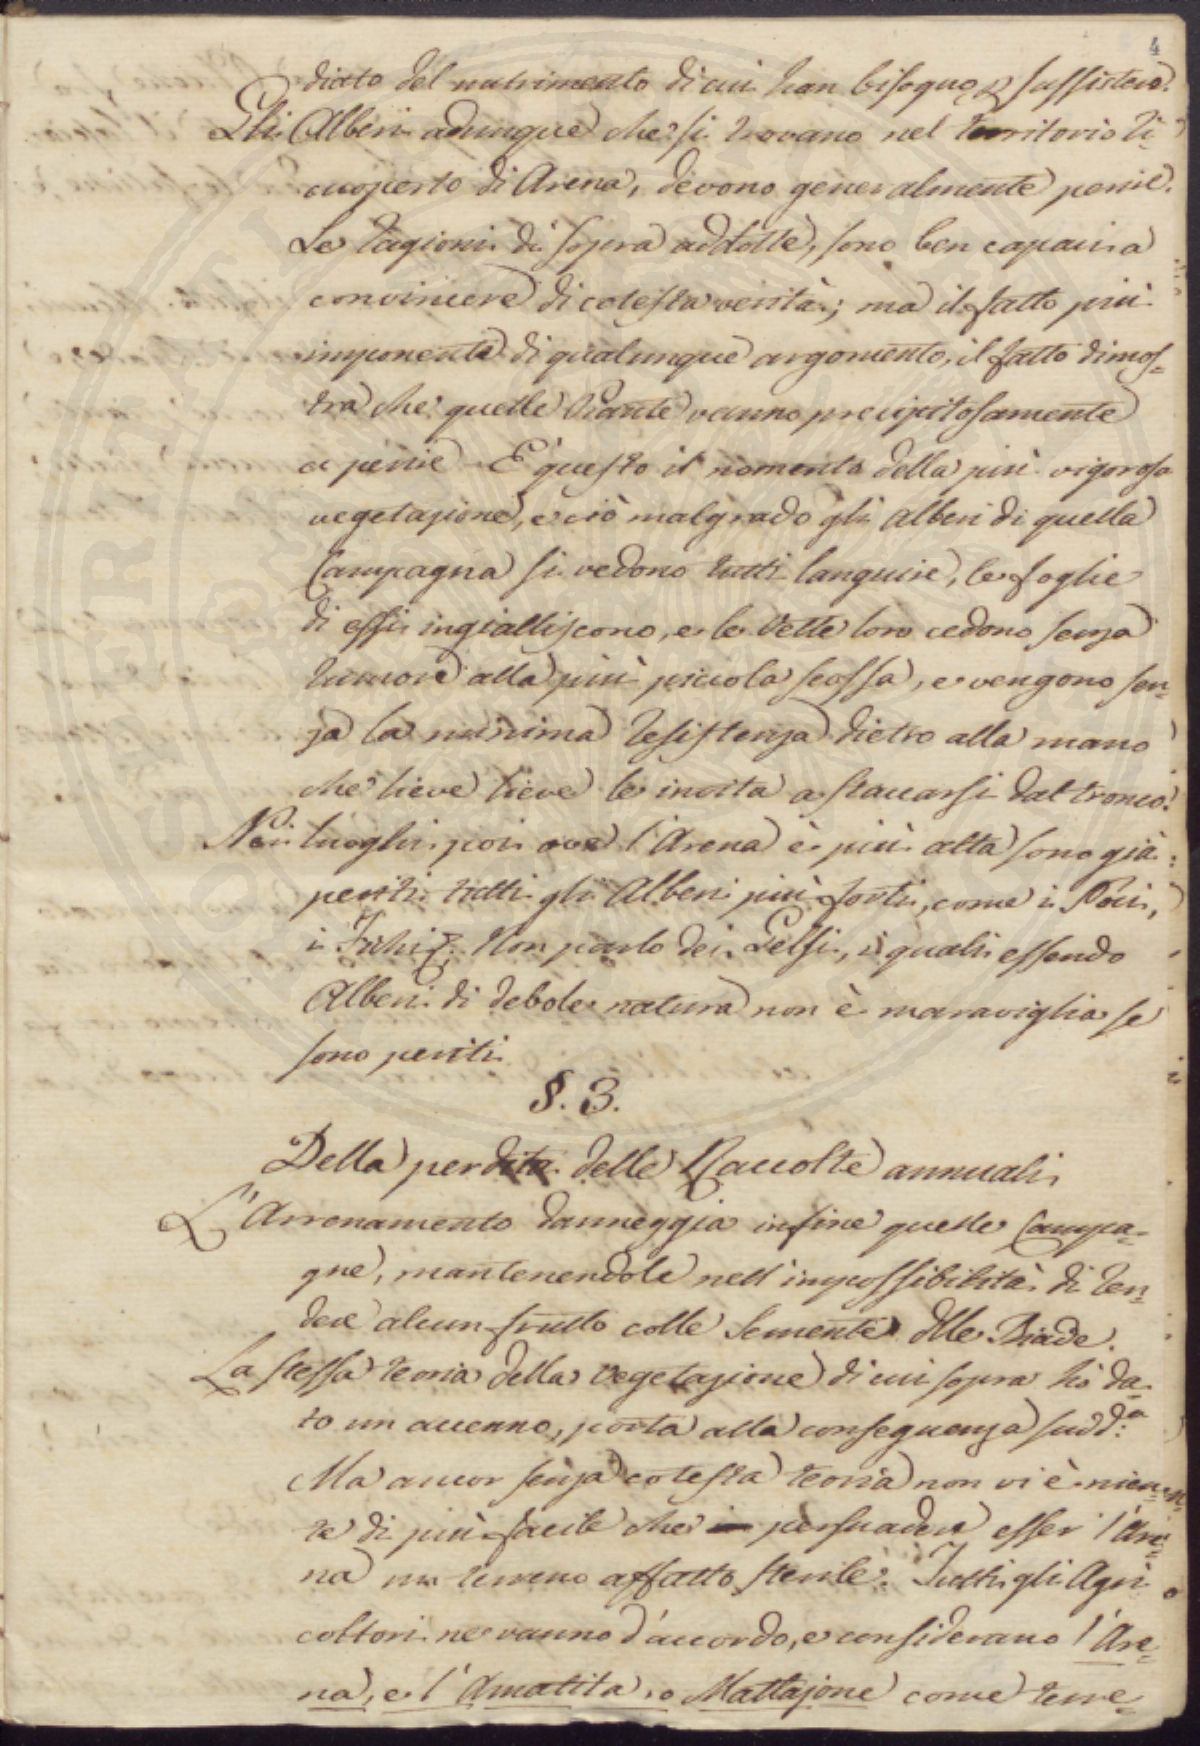 4
diato del nutrimento di cui han bisogno p sussistere.
Gli Alberi adunque che si trovano nel territorio ri-
cuoperto di Arena, devono generalmente perire.
Le ragioni di sopra addotte, sono ben capaci a
convincere di cotesta verità; ma il fatto più
imponente di qualunque argomento, il fatto dimos-
tra che quelle Piante vanno precipitosamente
a perire. E' questo il momento della più vigorosa
vegetazione, e ciò malgrado gli Alberi di quella
Campagna si vedono tutti languire, le foglie
di essi ingialliscono, e le vette loro cedono senza
rumore alla più piccola scossa, e vengono sen-
za la minima resistenza dietro alla mano
che lieve lieve le invita a staccarsi dal tronco.
Nei luoghi poi ove l'Arena è più alta sono già
periti tutti gli Alberi più forti, come i Noci,
i Fichi &. Non parlo dei Gelsi, i quali essendo
Alberi di debole natura non è maraviglia se
sono periti.
§. 3.
Della perdita delle Raccolte annuali.
L'Arrenamento danneggia infine quelle Campa-
gne, mantenendole nell'impossibilità di ren-
dere alcun frutto colle Semente delle Biade.
La stessa teoria della vegetazione di cui sopra hò da-
to un accenno, porta alla conseguenza sudd.a
Ma ancor senza cotesta teoria non vi è nien-
te di più facile che persuadere esser l'Are-
na un terreno affatto sterile. Tutti gli Agri-
coltori ne vanno d'accordo, e considerano l'Are-
na, e l'Amatita, o Mattajone come terre-